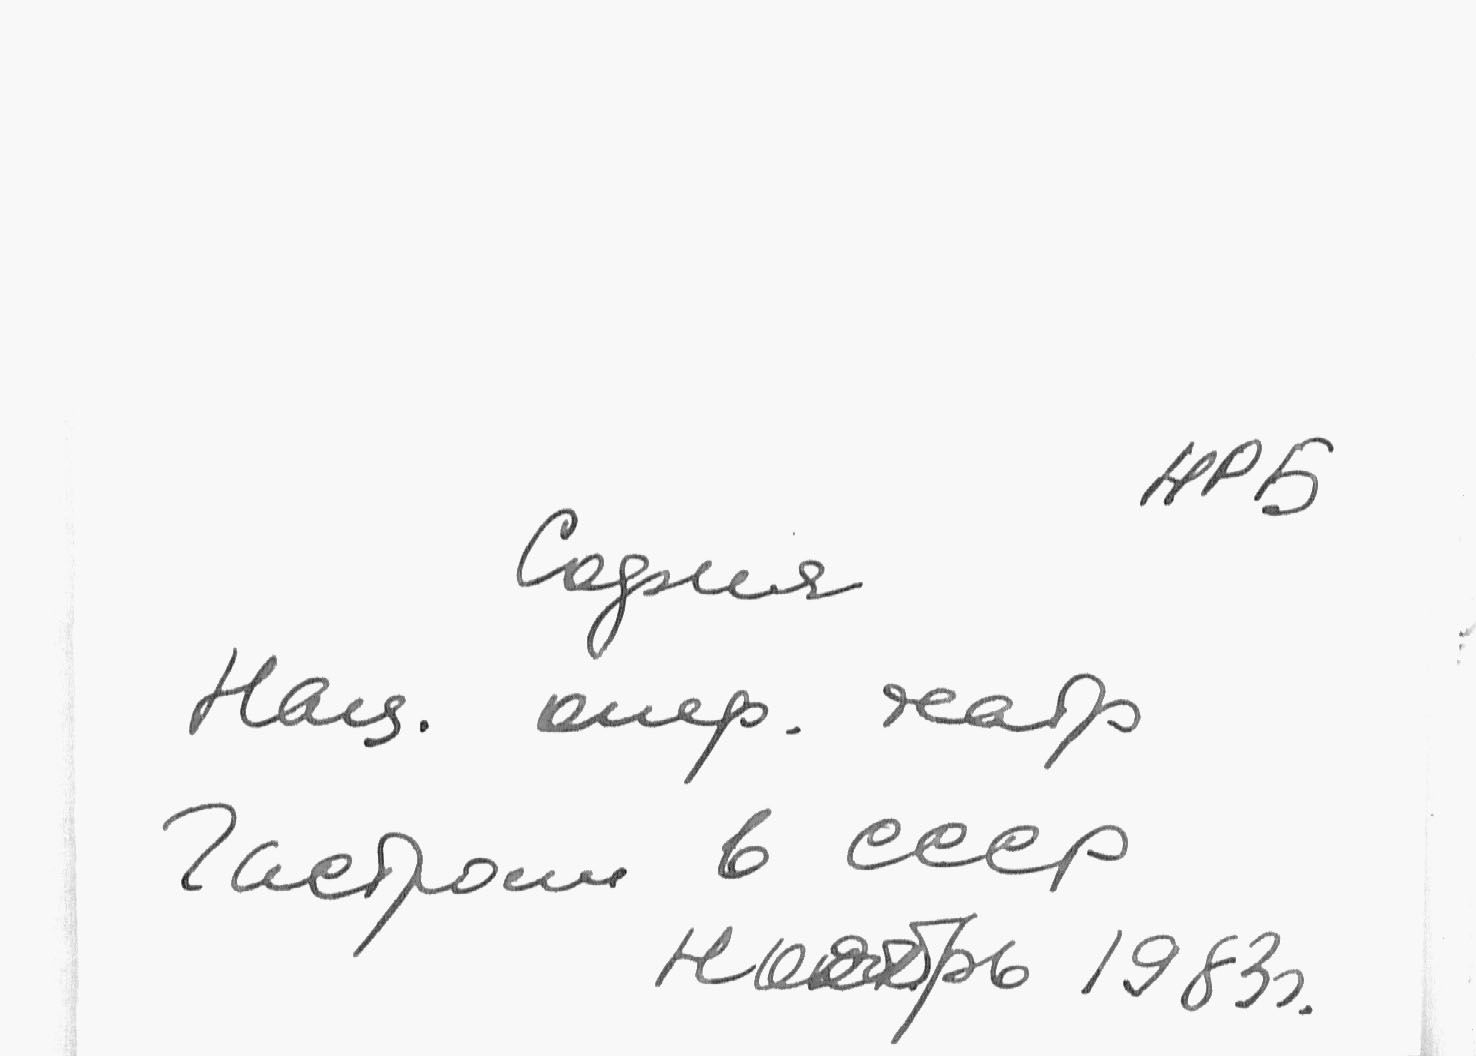 НРБ
София
Нац. опер. театр
Гастроли в СССР
ноябрь 1983г.